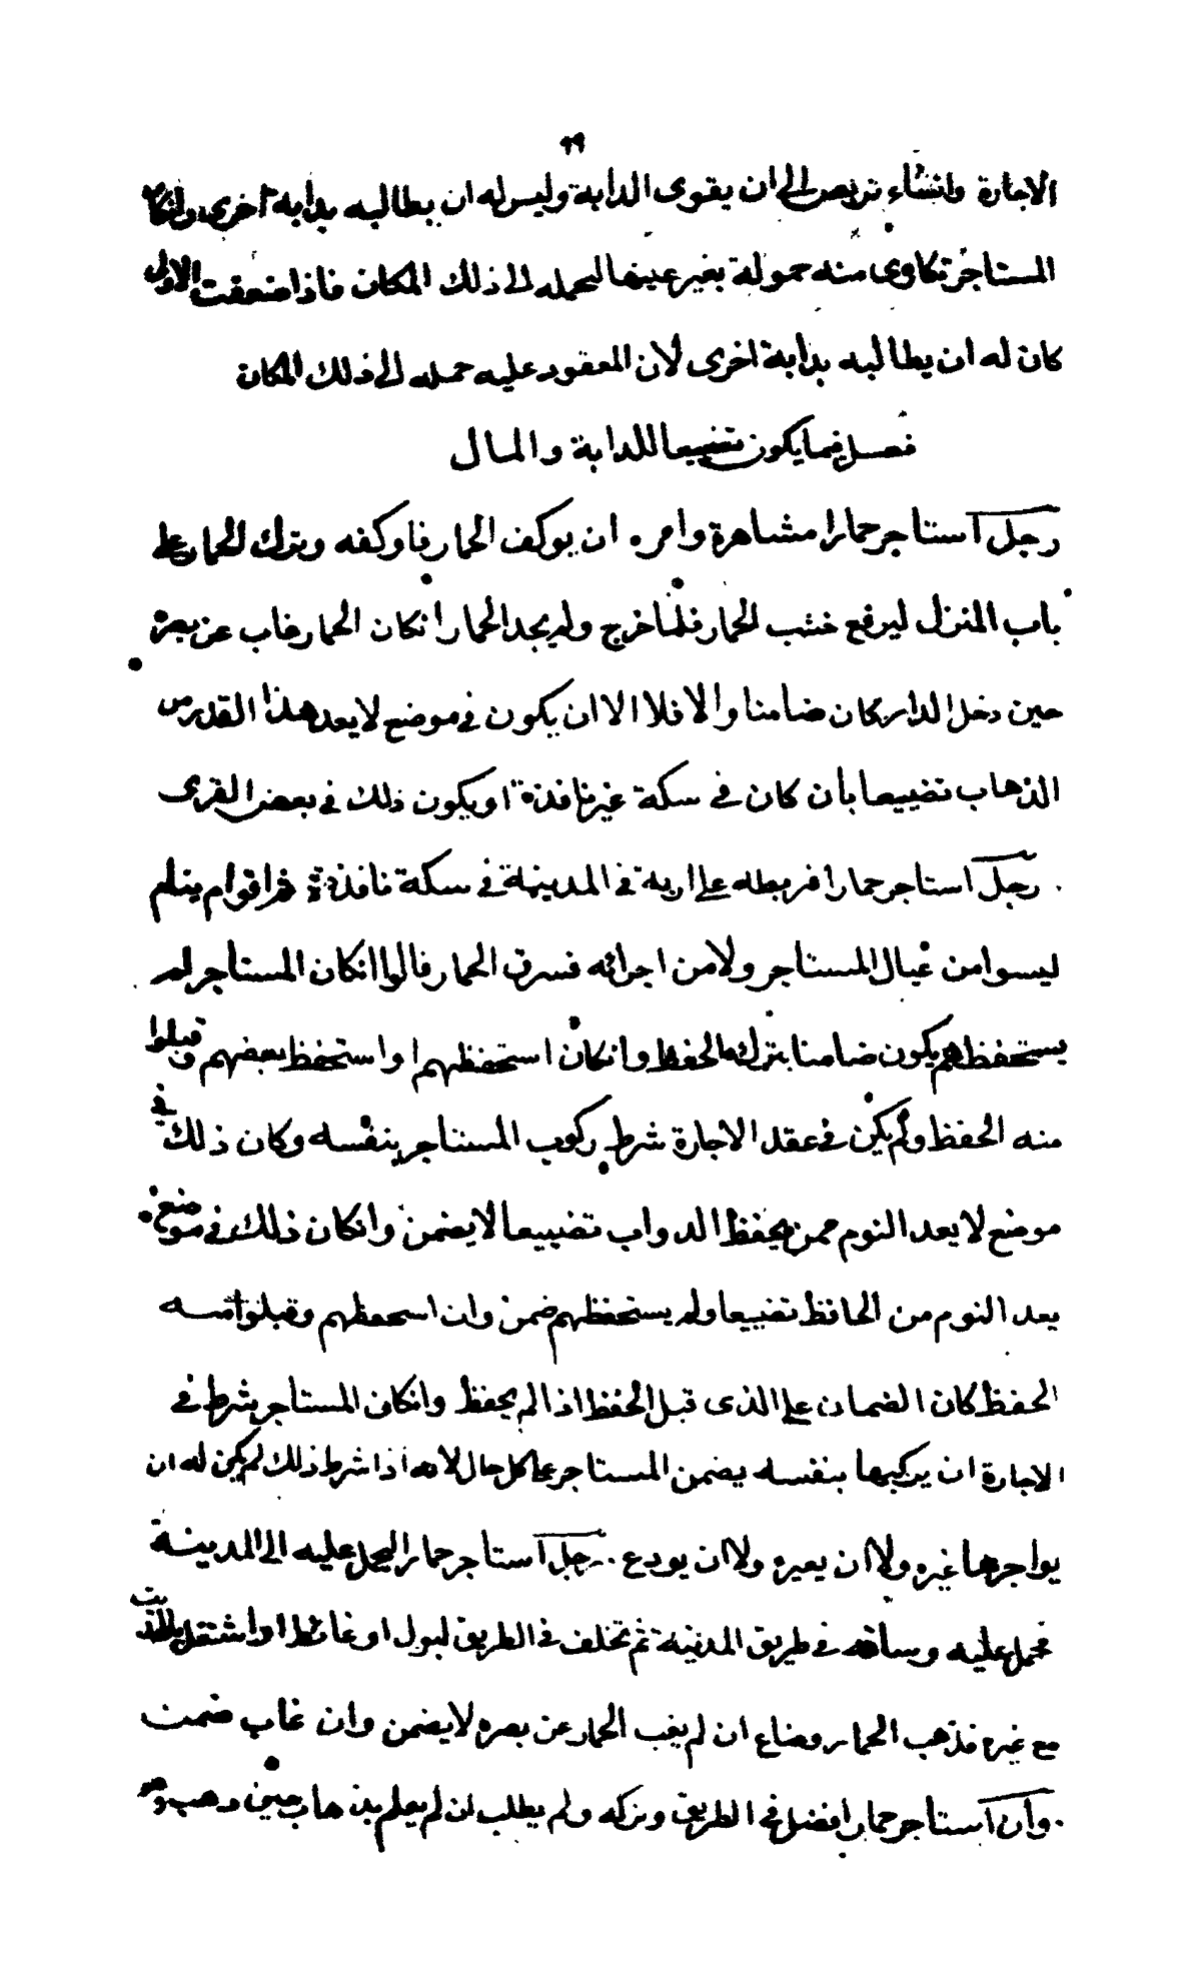 ٦٩
الاجارة وانشاء تربص الى ان يقوى الدابة وليس له ان يطالبه بدابة اخرى وانكان
المستاجر تكاوى منه حمولة بغير عينها ليحمله الى ذلك المكان فاذا ضعفت الاولى
كان له ان يطالبه بدابة اخرى لان المعقود عليه حمله الى ذلك المكان
فصل فيما يكون تضييعا للدابة والمال
رجل استاجر حمارا مشاهرة وامره ان يوكف الحمار فاوكفه وترك الحمار على
باب المنزل ليرفع خشب الحمار فلما خرج ولم يجد الحمار انكان الحمار غاب عن بصره
حين دخل الدار كان ضامنا والا فلا الا ان يكون في موضع لا يعد هذا القدر من
الذهاب تضييعا بأن كان في سكة غير نافذة او يكون ذلك في بعض القرى
رجل استاجر حمارا فربطه على اريه في المدينة في سكة نافذة وثم اقوام ينام
ليسوا من عيال المستاجر ولا من اجرائه فسرق الحمار قالوا انكان المستاجر لم
يستحفظهم يكون ضامنا بترك الحفظ وانكان استحفظهم او استحفظ بعضهم وقبلوا
منه الحفظ ولم يكن في عقد الاجارة شرط ركوب المستاجر بنفسه وكان ذلك في
موضع لا يعد النوم ممن يحفظ الدواب تضييعا لا يضمن وانكان ذلك في موضع
يعد النوم من الحافظ تضييعا ولم يستحفظهم ضمن وان استحفظهم وقبلوا منه
الحفظ كان الضمان على الذى قبل الحفظ اذا لم يحفظ وانكان المستاجر شرط في
الاجارة ان يركبها بنفسه يضمن المستاجر على كل حال لانه اذا شرط ذلك لم يكن له ان
يواجرها غيره ولا ان يعيره ولا ان يودع . رجل استاجر حمارا ليحمل عليه الى المدينة
فحمل عليه وساقه في طريق المدينة ثم تخلف في الطريق لبول او غائط او اشتغل بالحديث
مع غيره فذهب الحمار وضاع ان لم يغب الحمار عن بصره لا يضمن وان غاب ضمن
. وان استاجر حمارا فضل في الطريق وتركه ولم يطلب ان لم يعلم بذهابه حين ذهب وهو